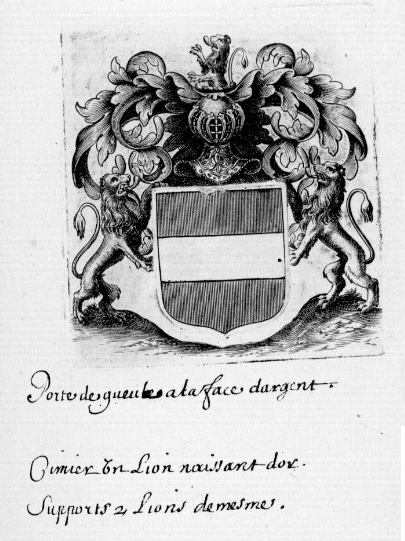 Porte de gueules a la face dargent.
Cimier vn Lion naissant dor.
Supports 2 Lions de mesme.